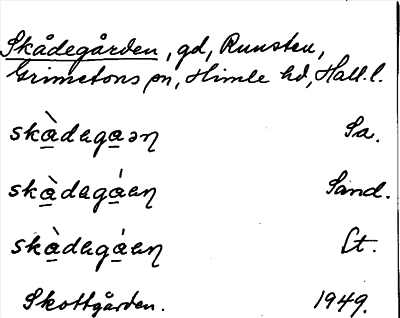 Skådegården, gd, Runsten,
Grimetons sn, Himle hd, Hall. l.
skàdegaəɳ Sa.
skàdegáeɳ Sand.
skàdegáeɳ Lt.
Skottgården. 1949.